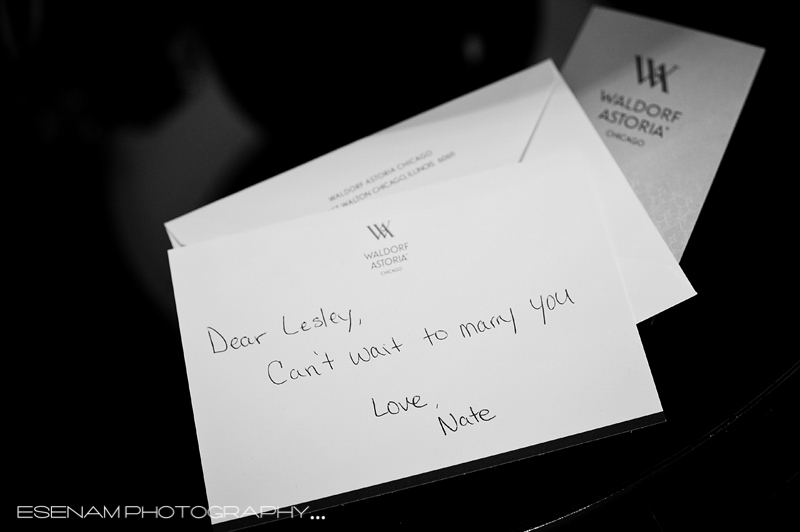 WA
WALDORF
ASTORIA
CHICAGO
WALDORF ASTORIA CHICAGO
WALTON CHICAGO, ILLINOIS 60611
WALDORF
ASTORIA
CHICAGO
Dear Lesley,
Can't wait to marry you
Love,
Nate
ESENAM PHOTOGRAPHY...